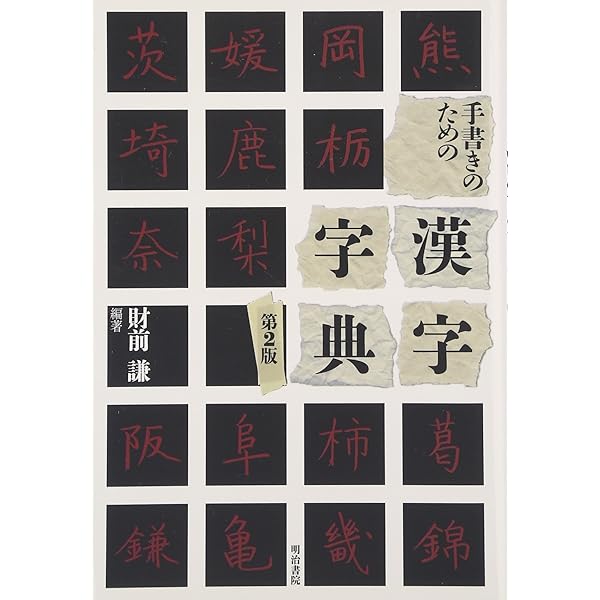 茨媛岡熊
埼鹿栃
奈梨
手書きの
ための
漢字
字典
第2版
財前 謙
編著
阪阜柿葛
鎌亀畿錦
明治書院